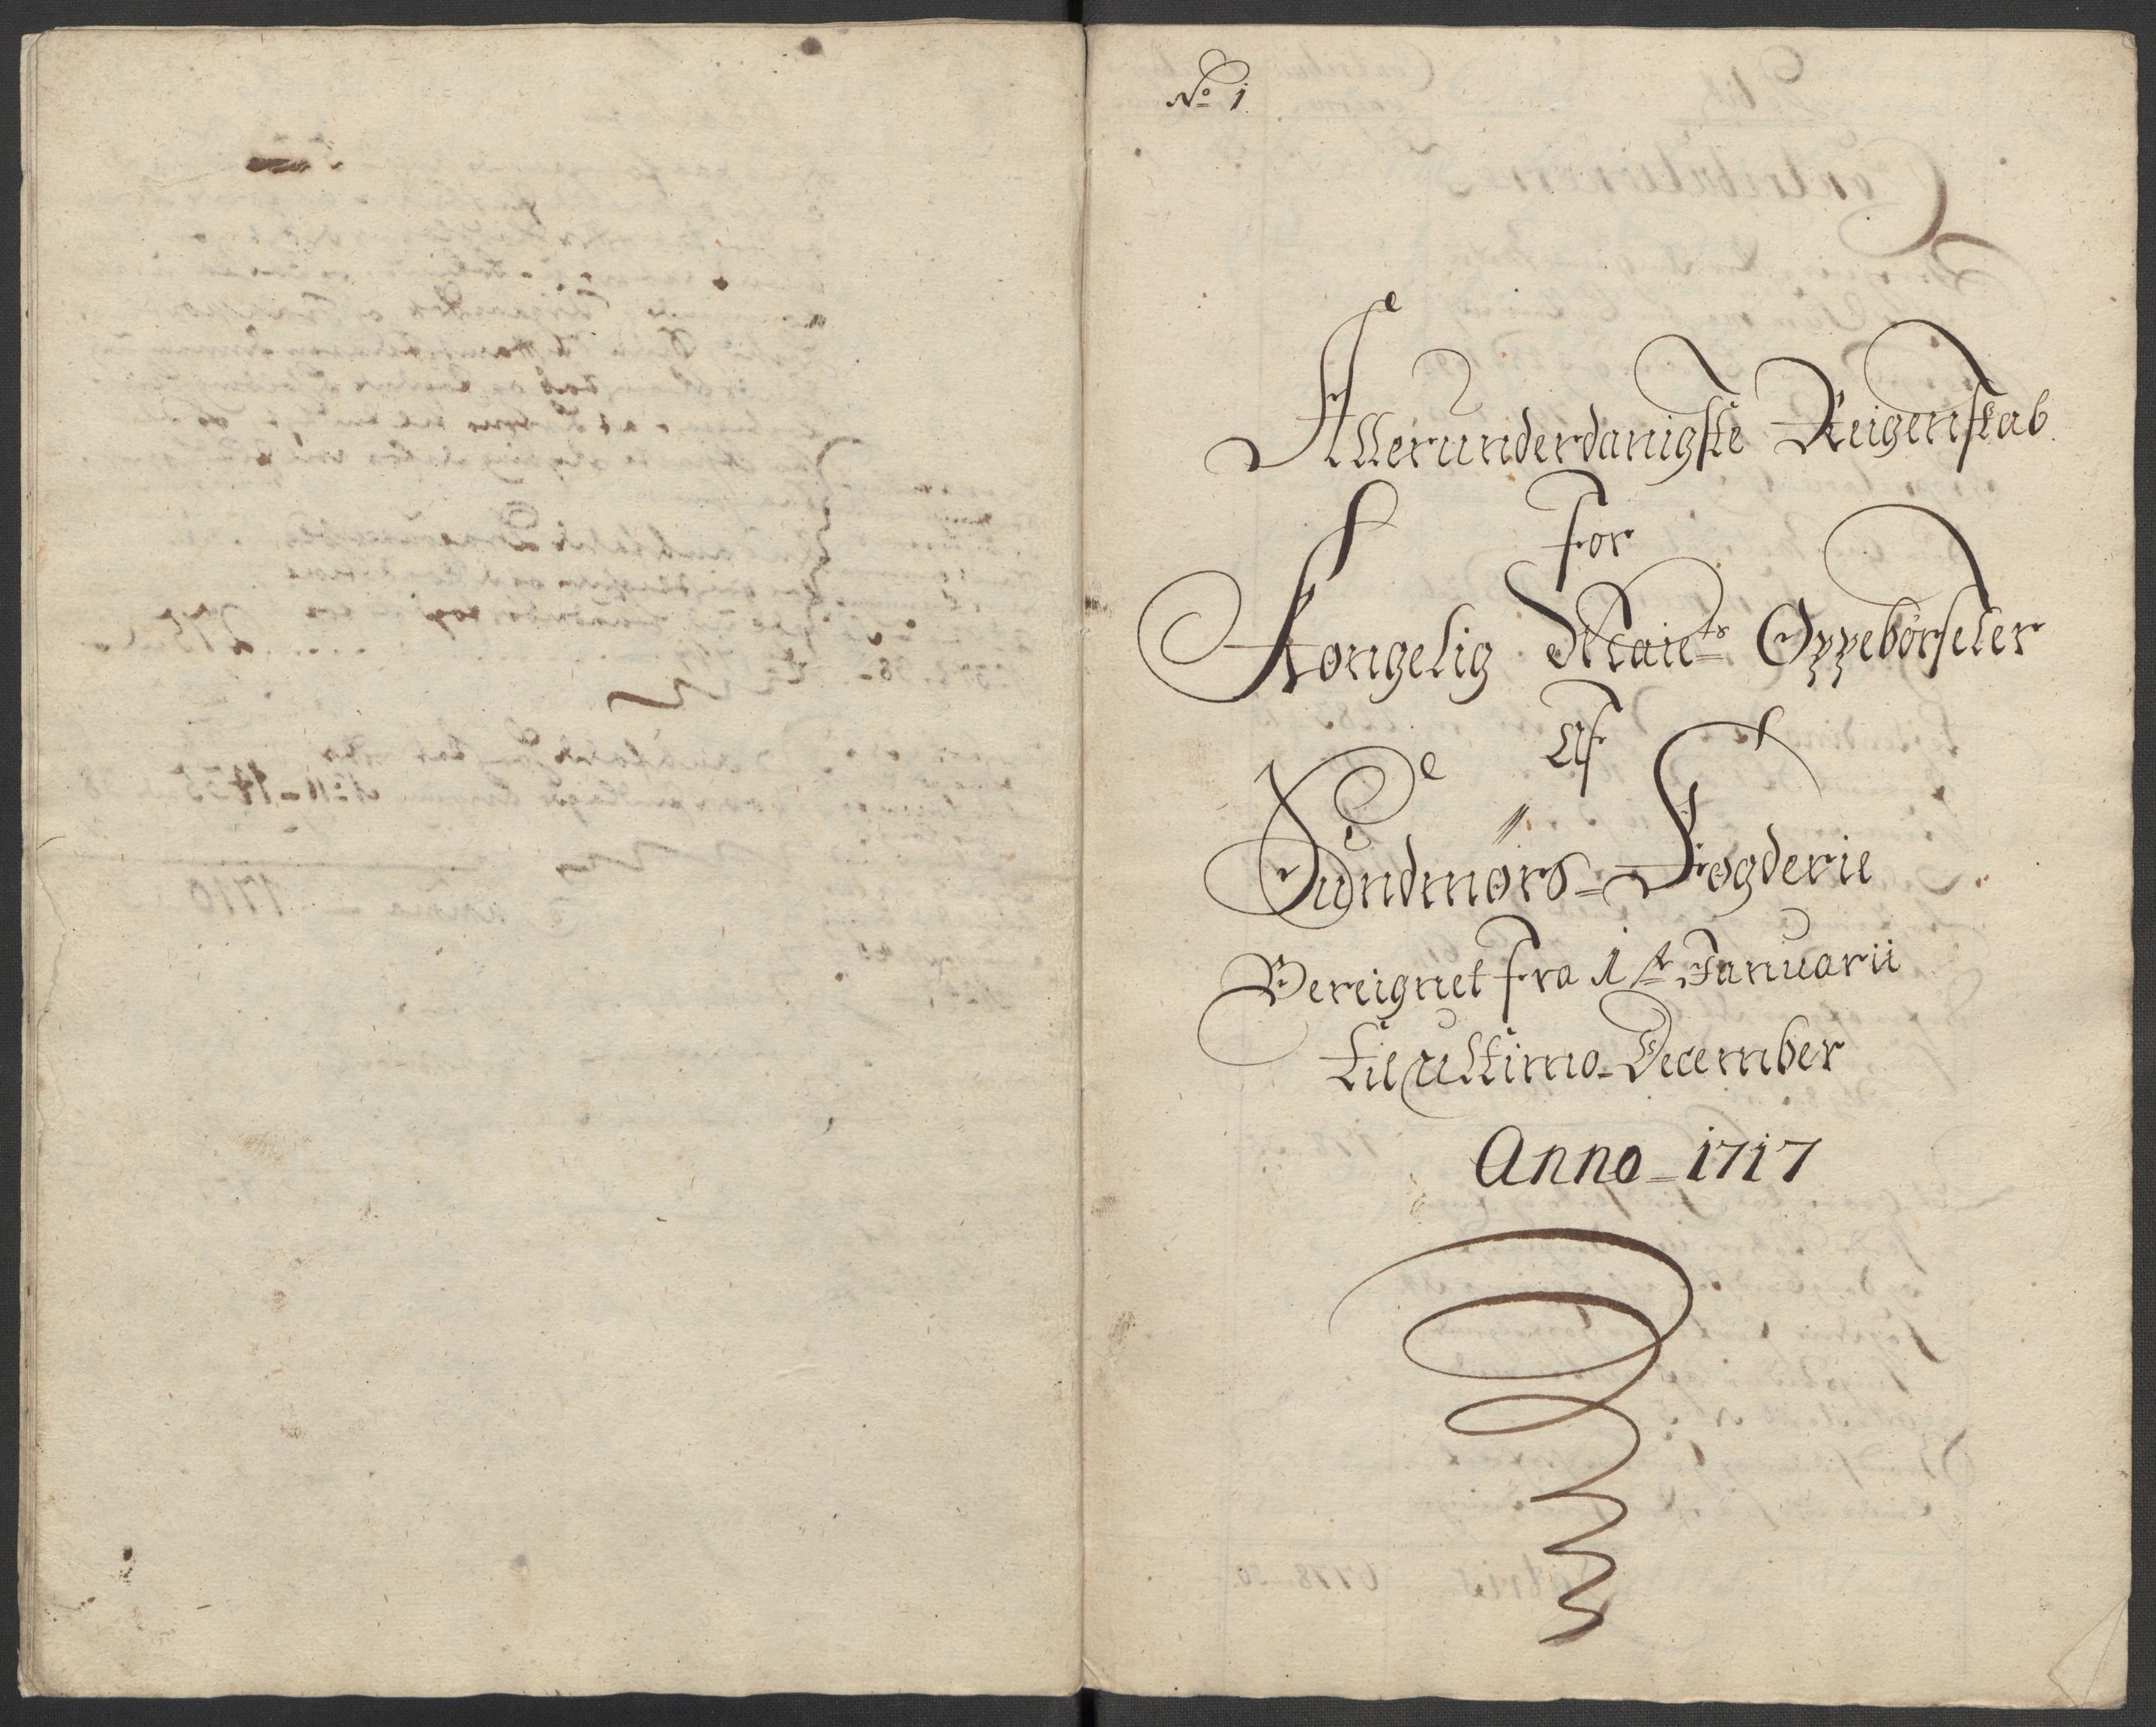 No 1
Allerunderdanigste Reigenskab
For
Kongelig Maiets Oppebørseler
Af
Sundmørs Fogderie
Bereignet fra 1ste Januarii
til ultimo December
Anno 1717